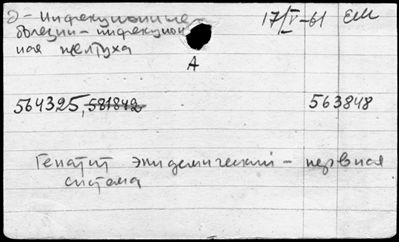 Э - Инфекционные 17/V-61 ЕМ
болезни - инфекцион
ная желтуха
А
564325, 581842 563848
Гепатит эпидемический - нервная
система